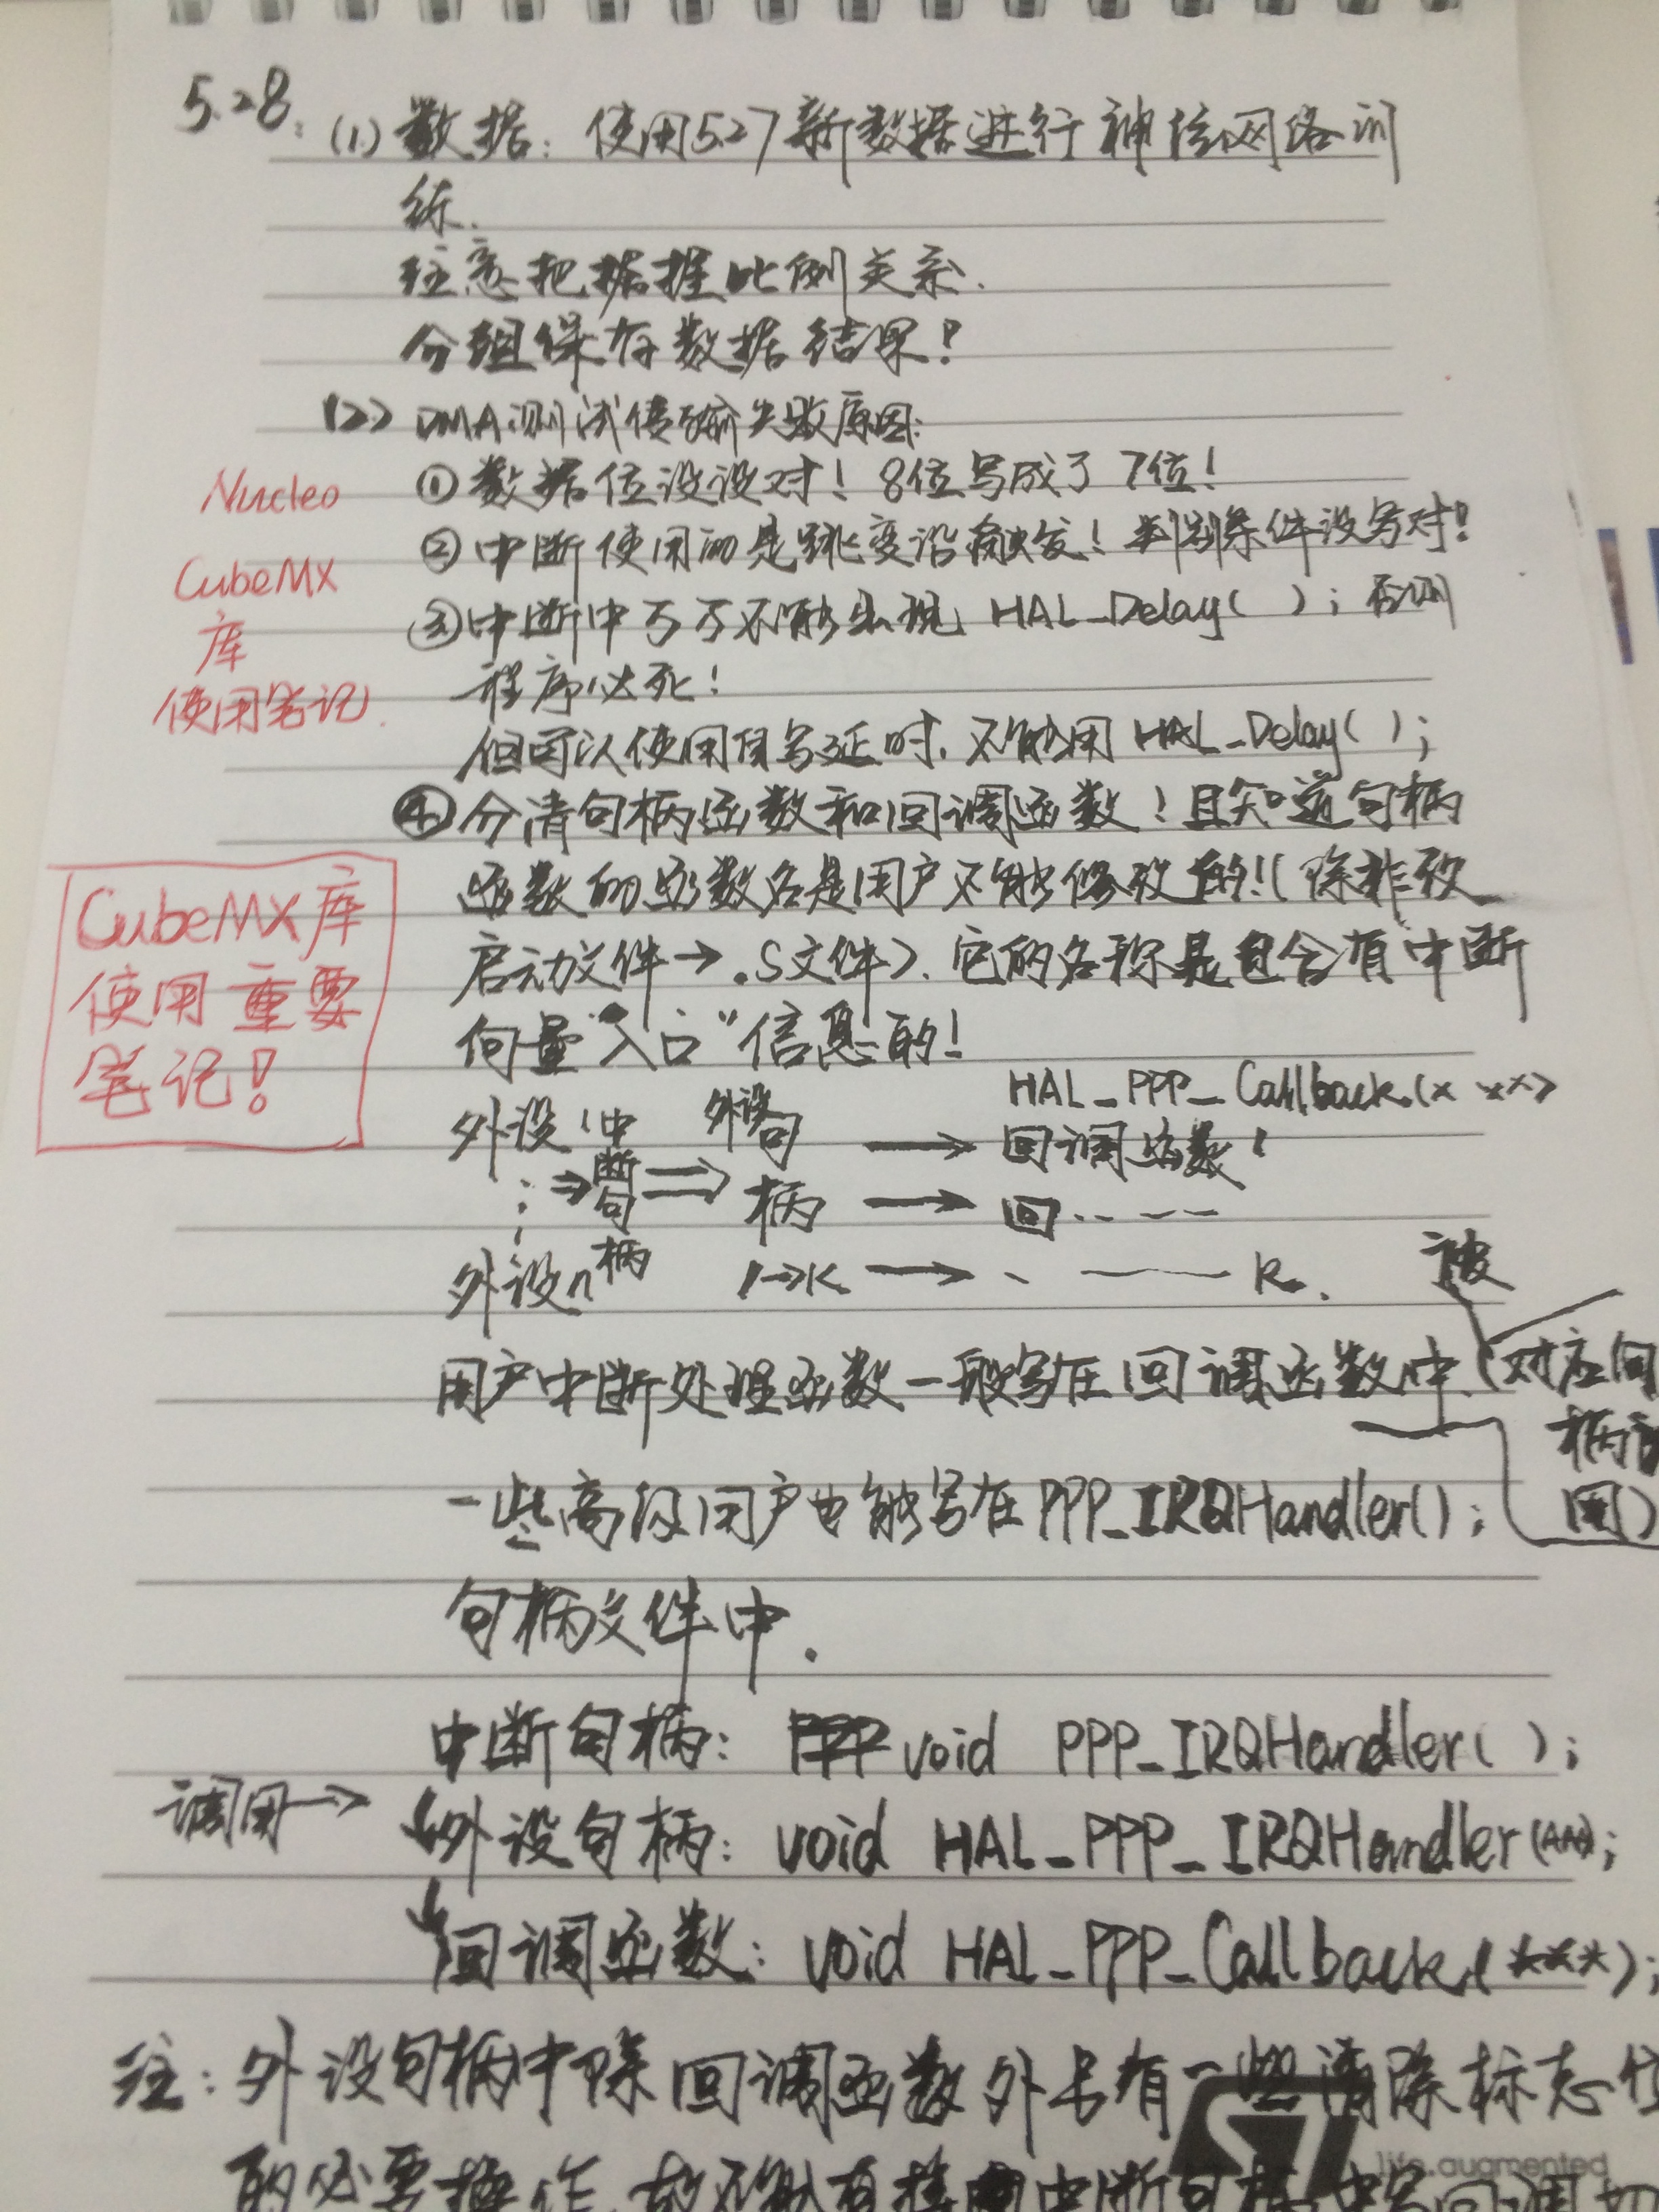 5.28.
(1) 数据：使用5.27新数据进行神经网络训
练.
注意把据握比例关系.
分组保存数据结果！
(2) DMA测试传输失败原因:
① 数据位没设对！8位写成了7位！
② 中断使用的是跳变沿触发！判别条件没写对！
③ 中断中万万不能出现 HAL_Delay( ); 否则
程序必死！
但可以使用自写延时, 不能用 HAL_Delay( );
④ 分清句柄函数和回调函数！且知道句柄
函数的函数名是用户不能修改的!(除非改
启动文件→.S文件). 它的名称是包含有中断
向量"入口"信息的!
Nucleo
CubeMX
库
使用笔记.
CubeMX库
使用重要
笔记！
HAL_PPP_Callback(×××)
外设1 ⇒ 中断句柄 ⇒ 外设句柄 → 回调函数1
→ 回……
外设n 1→K → 、—— K.
用户中断处理函数一般写在回调函数中.(对应句
柄
用)
被
一些高级用户也能写在PPP_IRQHandler();
句柄文件中.
中断句柄: void PPP_IRQHandler( );
调用→ 外设句柄: void HAL_PPP_IRQHandler( );
回调函数: void HAL_PPP_Callback(***);
注: 外设句柄中除回调函数外还有一些清除标志位
的必要操作, 故不能直接 中断句柄中写回调
life.augmented